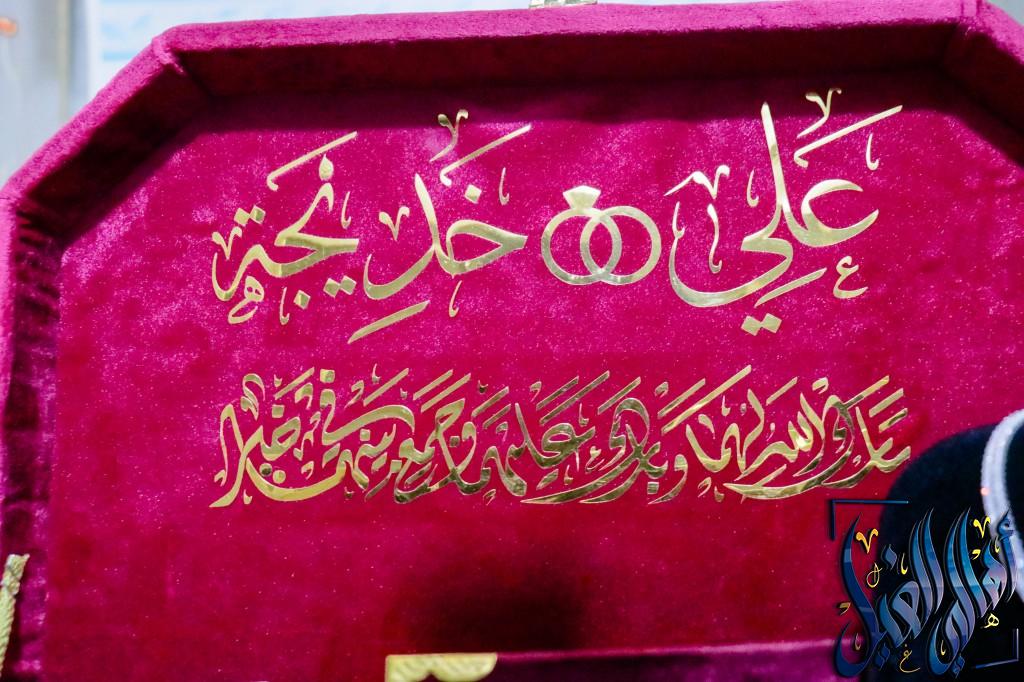 عَلِي خَدِيجَة
بارك الله لهما وبارك عليهما وجمع بينهما في خير